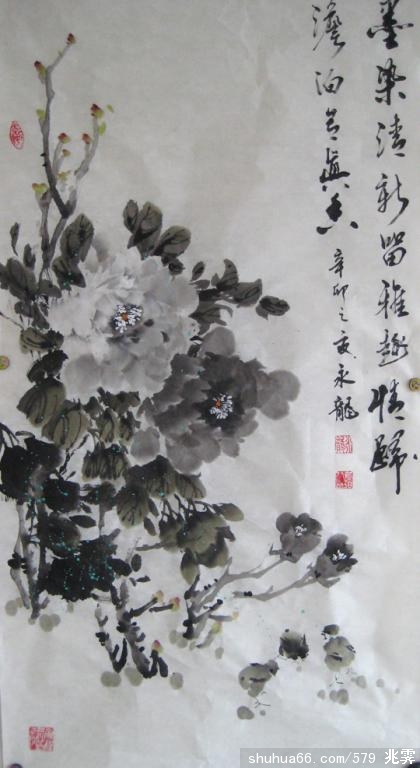 墨染清新留雅趣情归
澹泊是真香
辛卯之夏永龍
shuhua66.com/579 兆雾